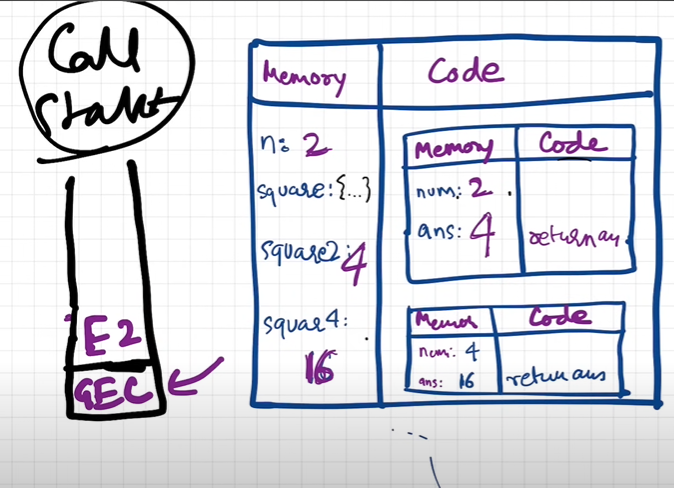 Call
Stakt
E2
GEC
Memory
Code
n: 2
square: {...}
square2: 4
squar4:
16
Memory
Code
num: 2
ans: 4
return an
Memor
Code
num: 4
ans: 16
return ans